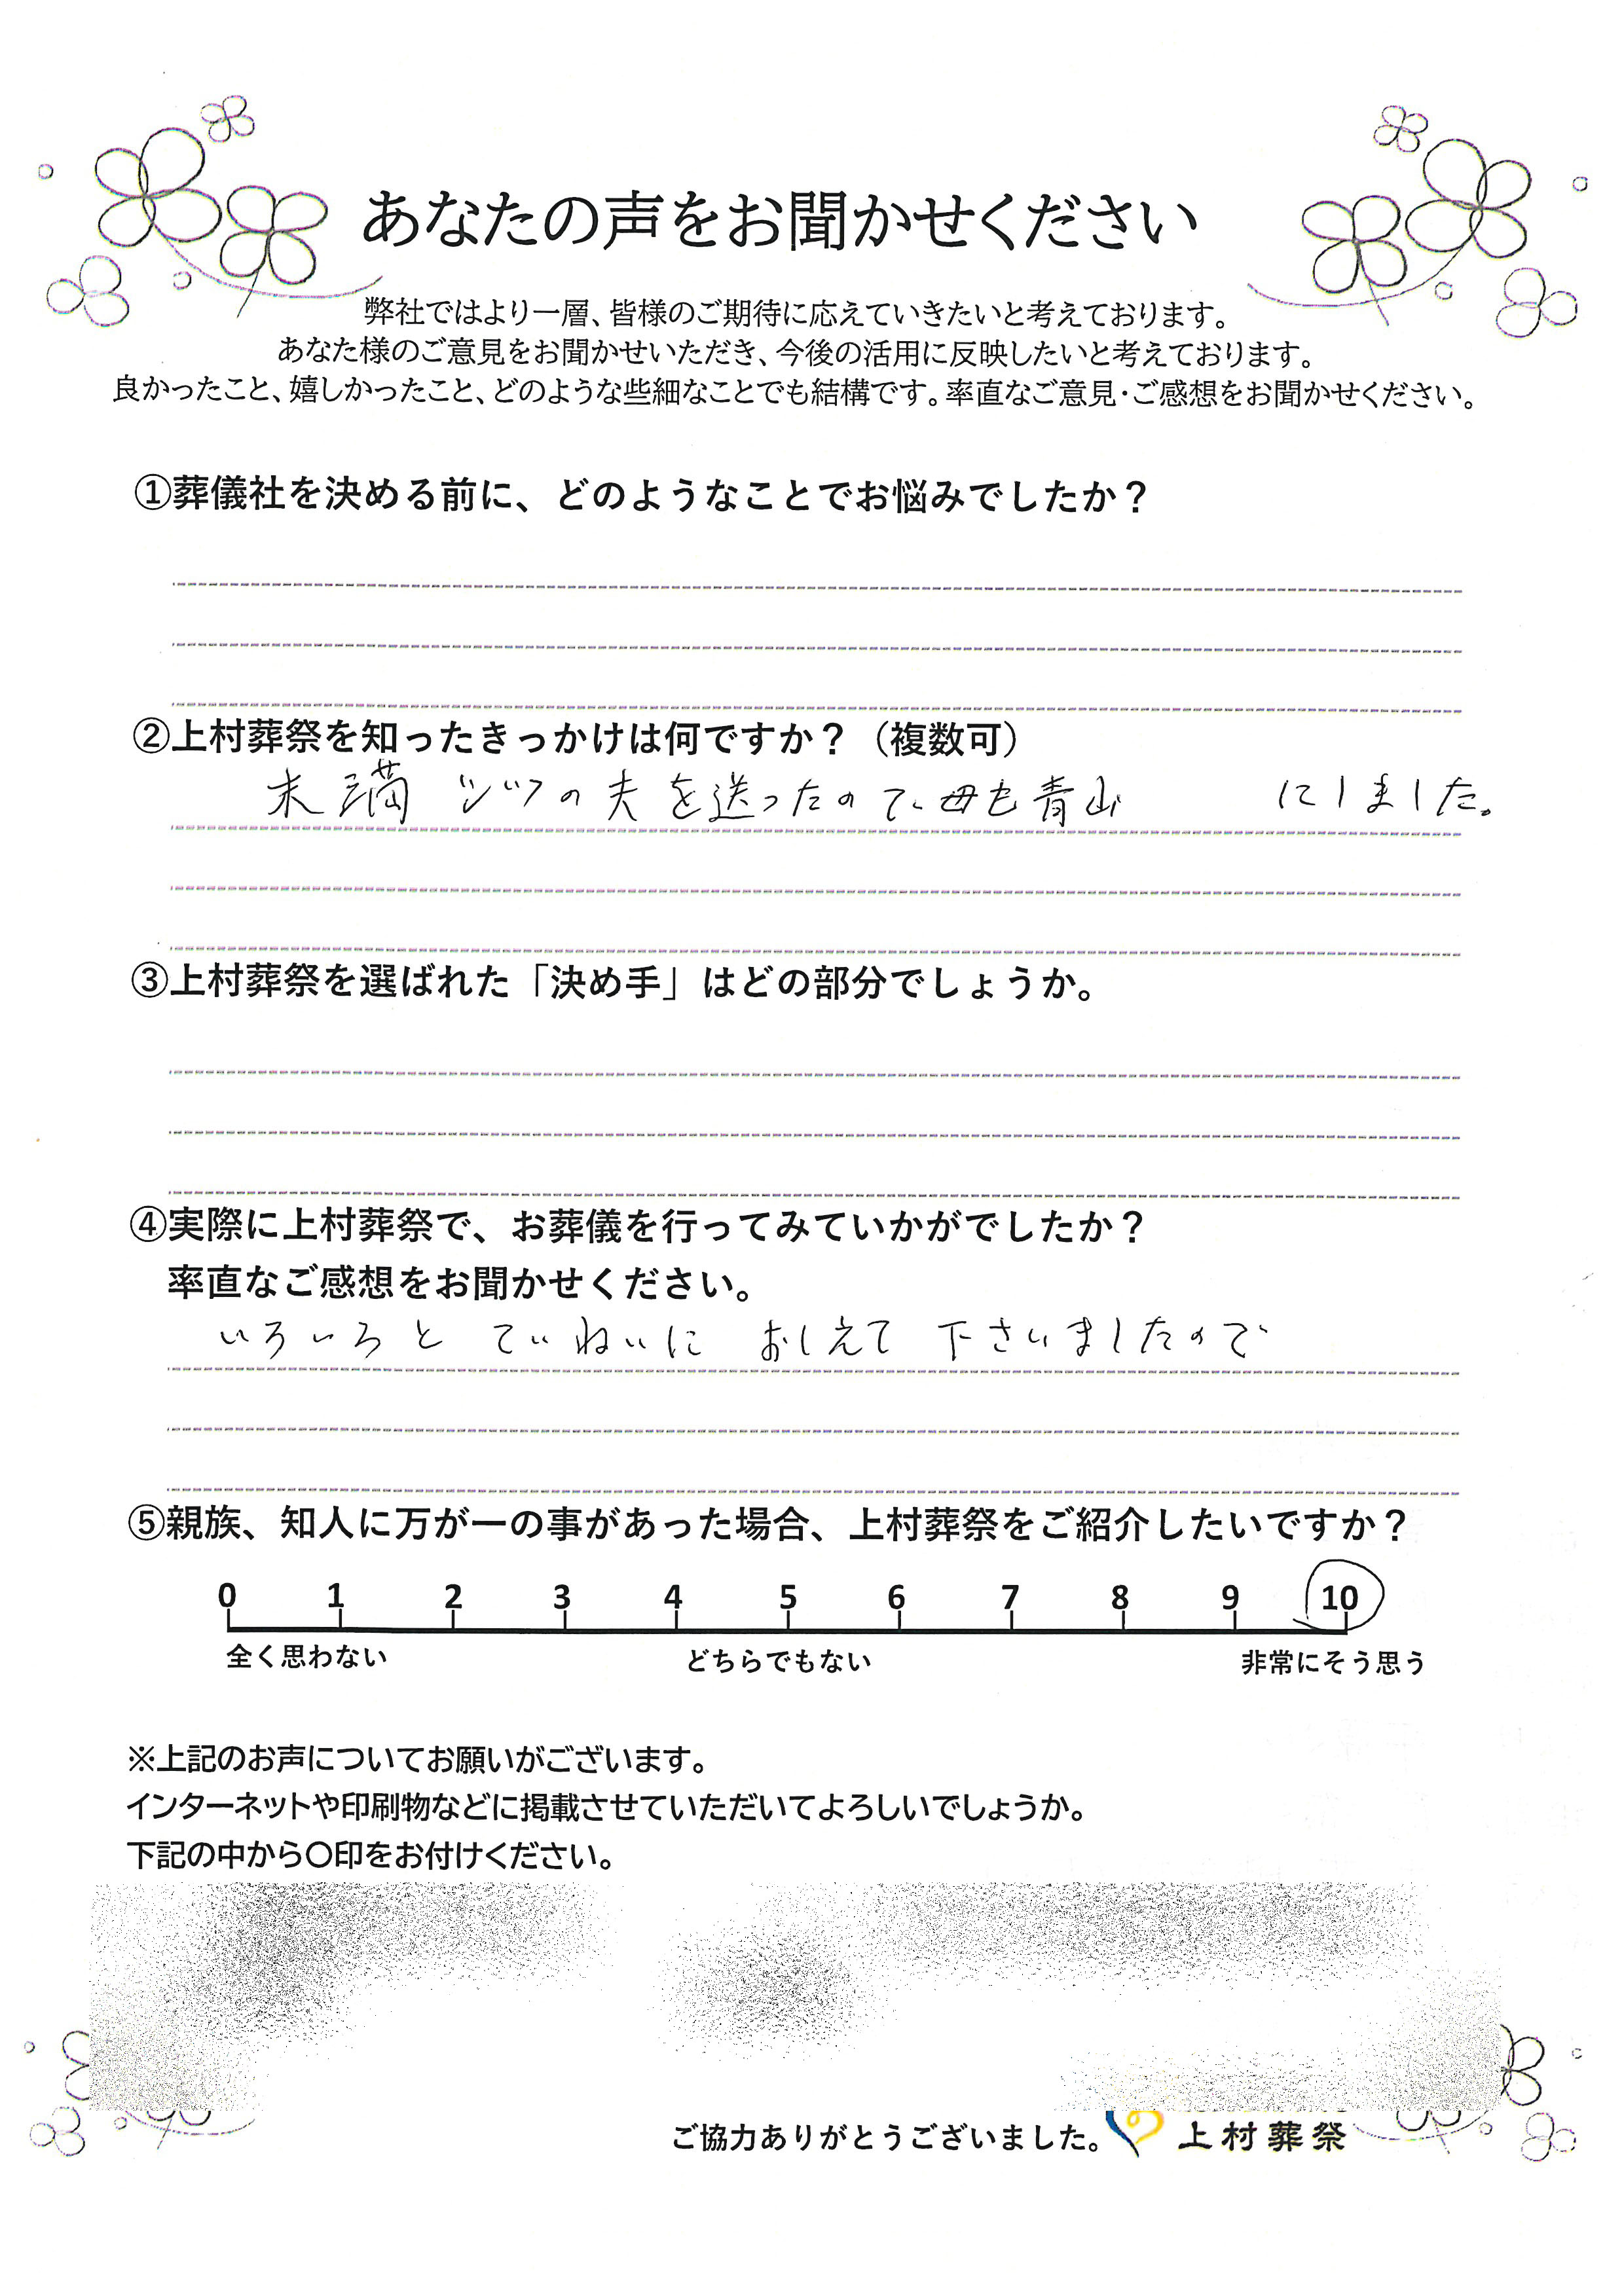 あなたの声をお聞かせください
弊社ではより一層、皆様のご期待に応えていきたいと考えております。
あなた様のご意見をお聞かせいただき、今後の活用に反映したいと考えております。
良かったこと、嬉しかったこと、どのような些細なことでも結構です。率直なご意見・ご感想をお聞かせください。
①葬儀社を決める前に、どのようなことでお悩みでしたか？
②上村葬祭を知ったきっかけは何ですか？（複数可）
末満 の夫を送ったので母も青山 にしました。
③上村葬祭を選ばれた「決め手」はどの部分でしょうか。
④実際に上村葬祭で、お葬儀を行ってみていかがでしたか？
率直なご感想をお聞かせください。
いろいろと ていねいに おしえて 下さいましたので
⑤親族、知人に万が一の事があった場合、上村葬祭をご紹介したいですか？
0 1 2 3 4 5 6 7 8 9 10
全く思わない どちらでもない 非常にそう思う
※上記のお声についてお願いがございます。
インターネットや印刷物などに掲載させていただいてよろしいでしょうか。
下記の中から〇印をお付けください。
ご協力ありがとうございました。 上村葬祭